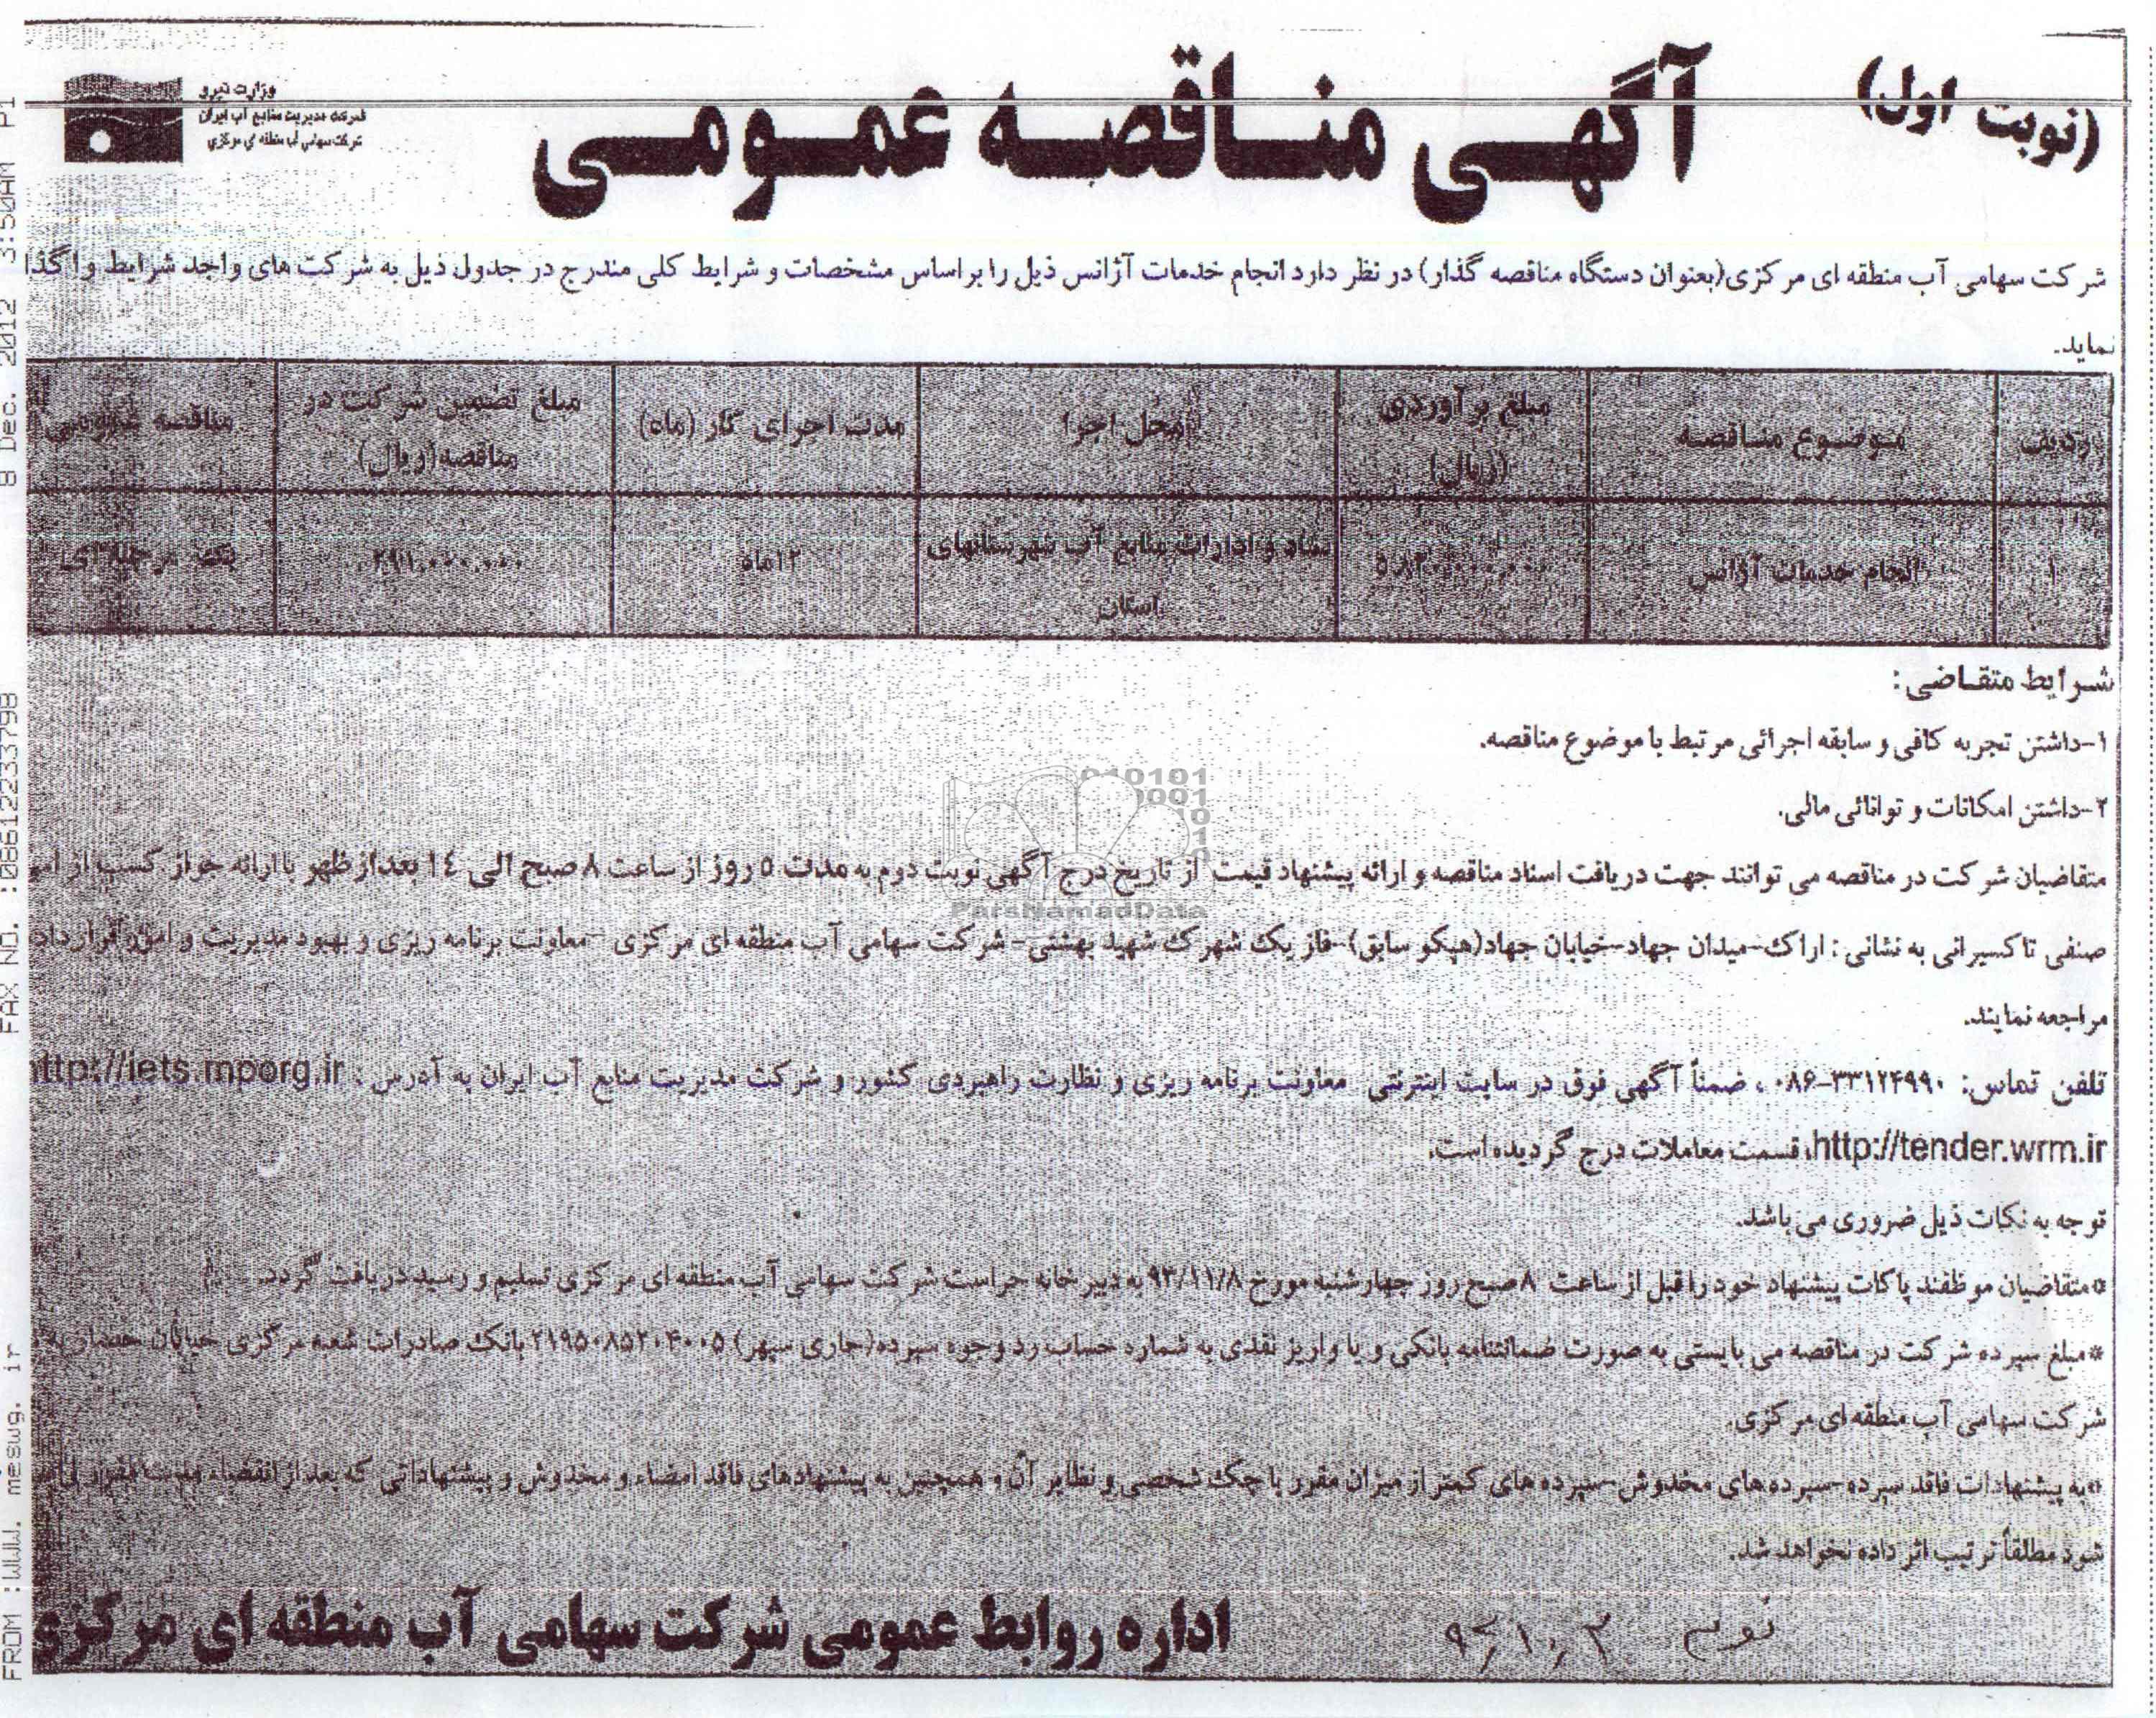 (نوبت اول)
آگهی مناقصه عمومی
وزارت نیرو
شرکت مدیریت منابع آب ایران
شرکت سهامی آب منطقه ای مرکزی
شرکت سهامی آب منطقه ای مرکزی(بعنوان دستگاه مناقصه گذار) در نظر دارد انجام خدمات آژانس ذیل را براساس مشخصات و شرایط کلی مندرج در جدول ذیل به شرکت های واجد شرایط واگذا
نماید.
ردیف موضوع مناقصه مبلغ برآوردی (ریال) محل اجرا مدت اجرای کار (ماه) مبلغ تضمین شرکت در مناقصه(ریال) مناقصه عمومی
۱ انجام خدمات آژانس ستاد و ادارات منابع آب شهرستانهای استان ۱۲ماه یک مرحله ای
شرایط متقاضی:
۱-داشتن تجربه کافی و سابقه اجرائی مرتبط با موضوع مناقصه.
۲-داشتن امکانات و توانائی مالی.
متقاضیان شرکت در مناقصه می توانند جهت دریافت اسناد مناقصه و ارائه پیشنهاد قیمت از تاریخ درج آگهی نوبت دوم به مدت ۵ روز از ساعت ۸ صبح الی ۱۴ بعدازظهر با ارائه جواز کسب از
صنفی تاکسیرانی به نشانی: اراک-میدان جهاد-خیابان جهاد(هپکو سابق)-فاز یک شهرک شهید بهشتی-شرکت سهامی آب منطقه ای مرکزی-معاونت برنامه ریزی و بهبود مدیریت و امور قرارداد
مراجعه نمایند.
تلفن تماس: ۳۳۱۲۴۹۹۰-۰۸۶ ، ضمناً آگهی فوق در سایت اینترنتی معاونت برنامه ریزی و نظارت راهبردی کشور و شرکت مدیریت منابع آب ایران به آدرس : ttp://iets.mporg.ir
http://tender.wrm.ir، قسمت معاملات درج گردیده است.
توجه به نکات ذیل ضروری می باشد.
*متقاضیان موظفند پاکات پیشنهاد خود را قبل از ساعت ۸صبح روز چهارشنبه مورخ ۹۳/۱۱/۸ به دبیرخانه حراست شرکت سهامی آب منطقه ای مرکزی تسلیم و رسید دریافت گردد.
*مبلغ سپرده شرکت در مناقصه می بایستی به صورت ضمانتنامه بانکی و یا واریز نقدی به شماره حساب رد وجوه سپرده(جاری سپهر) بانک صادرات شعبه مرکزی خیابان حصار به
شرکت سهامی آب منطقه ای مرکزی.
*به پیشنهادات فاقد سپرده-سپرده های مخدوش-سپرده های کمتر از میزان مقرر یا چک شخصی و نظایر آن و همچنین به پیشنهادهای فاقد امضاء و مخدوش و پیشنهاداتی که بعد از انقضاء مدت مقرر
شود مطلقاً ترتیب اثر داده نخواهد شد.
اداره روابط عمومی شرکت سهامی آب منطقه ای مرکزی
ParsNamadData
FROM :WWW. meswg. ir FAX NO. :08612233798 8 Dec. 2012 3:50AM P1